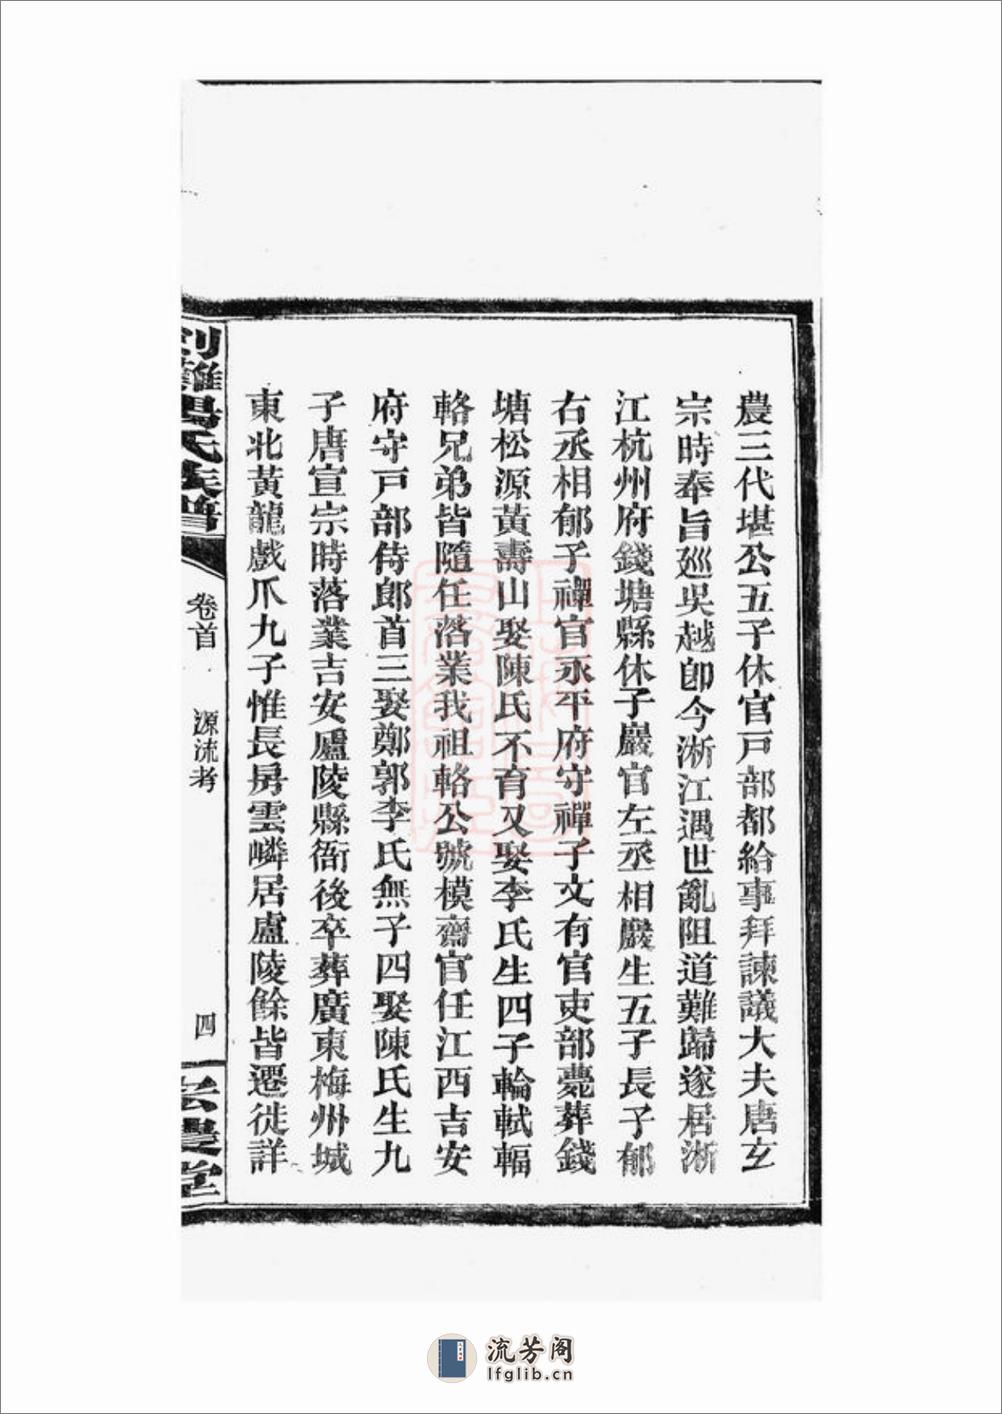 農三代堪公五子休官戸部都給事拜諫議大夫唐玄
宗時奉旨廵吳越卽今淅江遇世亂阻道難歸遂居淅
江杭州府錢塘縣休子巖官左丞相巖生五子長子郁
右丞相郁子禪官永平府守禪子文有官吏部薨葬錢
塘松源黃壽山娶陳氏不育又娶李氏生四子輪軾輻
輅兄弟皆隨任落業我祖輅公號模齋官任江西吉安
府守戸部侍郎首三娶鄭郭李氏無子四娶陳氏生九
子唐宣宗時落業吉安廬陵縣衙後卒葬廣東梅州城
東北黃龍戲爪九子惟長房雲嶙居盧陵餘皆遷徙詳
楊氏族譜
卷首
源流考
四
農堂
流芳阁
lfglib.cn